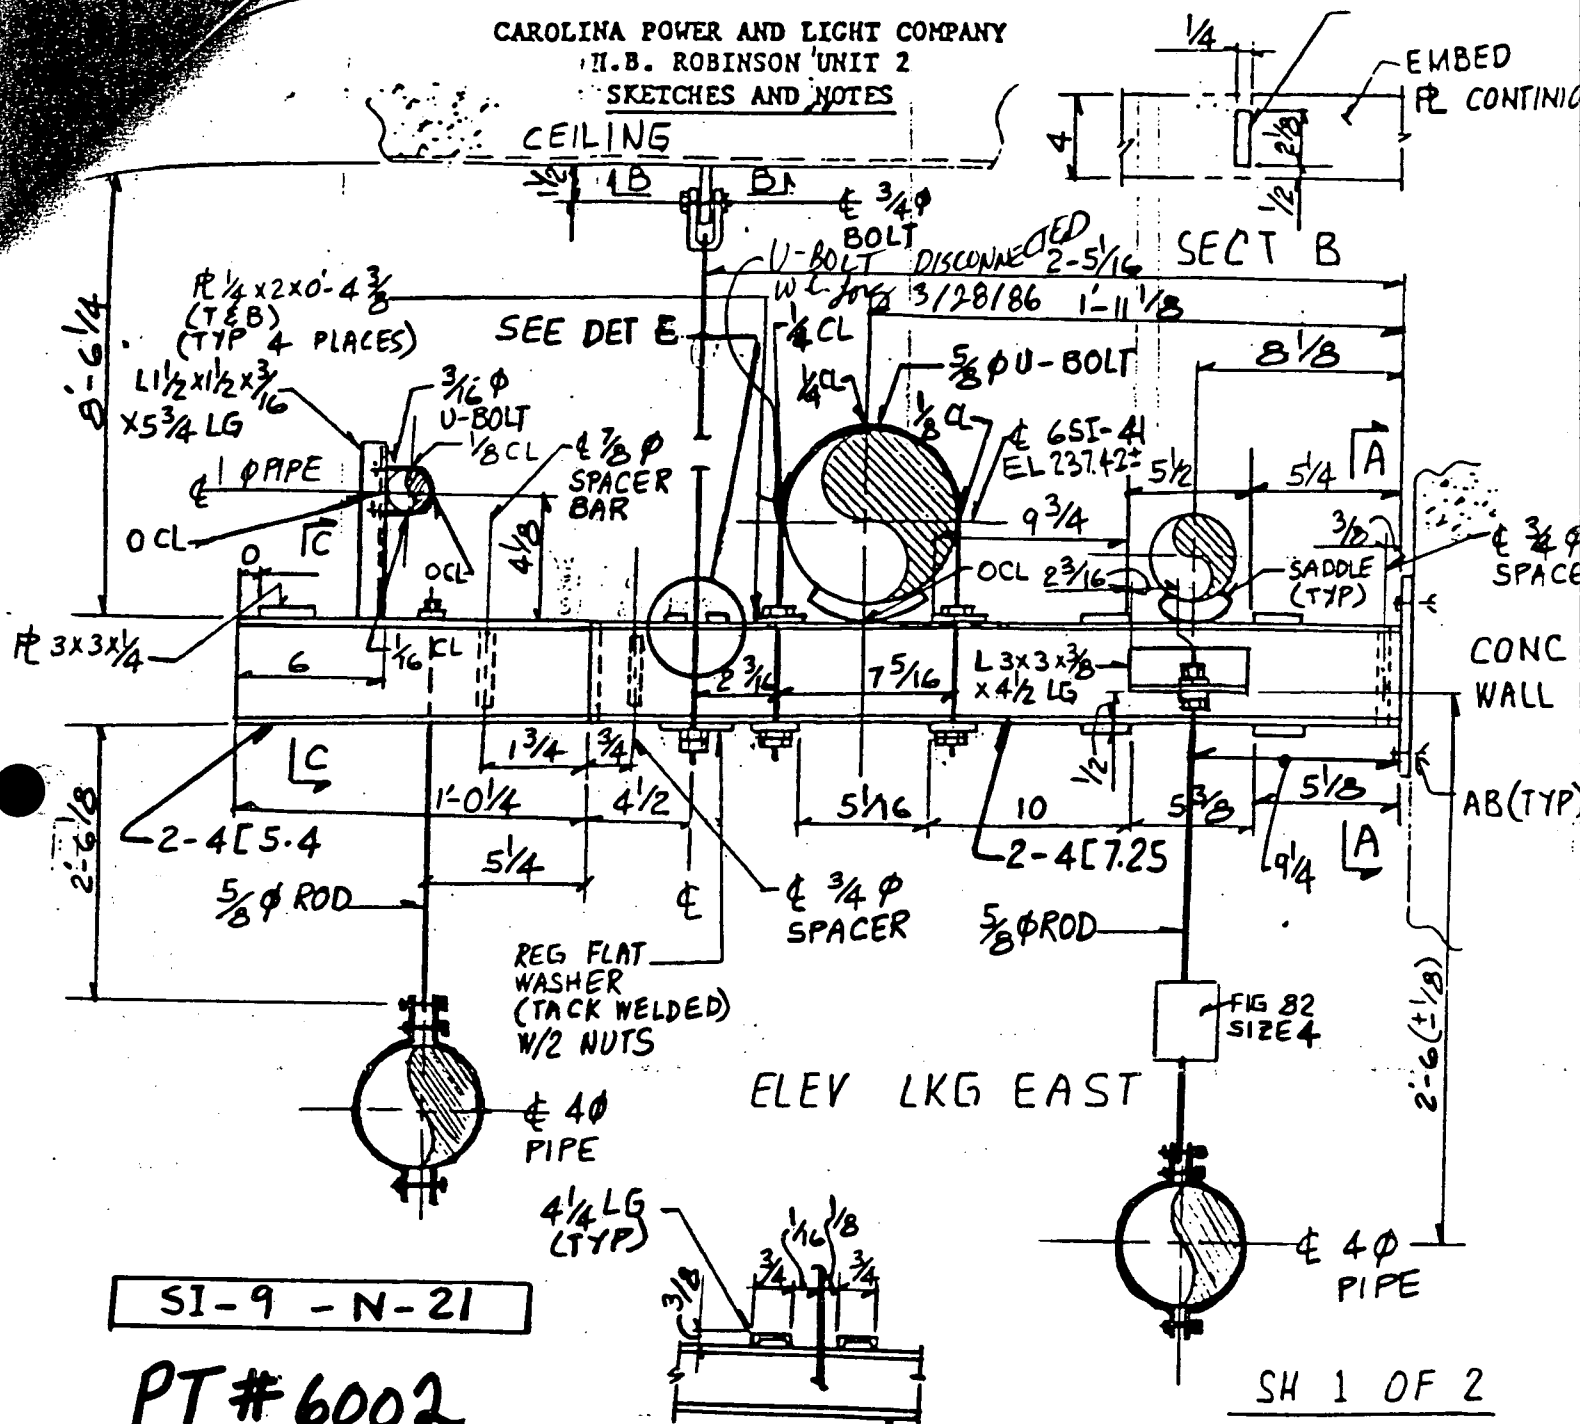 CAROLINA POWER AND LIGHT COMPANY
H.B. ROBINSON UNIT 2
SKETCHES AND NOTES
CEILING
1/4
EMBED
PL CONTINIO
4
2 1/8
1/2
SECT B
1 1/2
B
B
℄ 3/4 φ
BOLT
U-BOLT DISCONNECTED
3/28/86
2-5/16
1'-11 1/8
8 1/8
8'-6 1/4
PL 1/4 x 2 x 0'-4 3/8
(T & B)
(TYP 4 PLACES)
SEE DET E
1/4 CL
1/4 CL
5/8 φ U-BOLT
1/8 CL
L1 1/2 x 1 1/2 x 3/16
x 5 3/4 LG
3/16 φ
U-BOLT
1/8 CL
℄ 7/8 φ
SPACER
BAR
℄ 6SI-41
EL 237.42±
5 1/2
5 1/4
A
℄ 1 φ PIPE
0 CL
C
0
0CL
4 1/8
9 3/4
0CL
2 3/16
SADDLE
(TYP)
3/8
℄ 3/4 φ
SPACE
PL 3x3x1/4
6
1/16 CL
2 3/16
7 5/16
L 3x3x3/8
x 4 1/2 LG
CONC
WALL
C
1 3/4
3/4
1/2
1'-0 1/4
4 1/2
5 1/16
10
5 3/8
5 1/8
AB (TYP)
2-4[5.4
2-4[7.25
9 1/4
A
2'-6 1/8
5 1/4
5/8 φ ROD
℄
℄ 3/4 φ
SPACER
5/8 φ ROD
REG FLAT
WASHER
(TACK WELDED)
W/2 NUTS
FIG 82
SIZE 4
2'-6 (±1/8)
ELEV LKG EAST
℄ 4φ
PIPE
4 1/4 LG
(TYP)
1/16
1/8
3/4
3/4
3/8
℄ 4φ
PIPE
SI-9 - N-21
PT # 6002
SH 1 OF 2